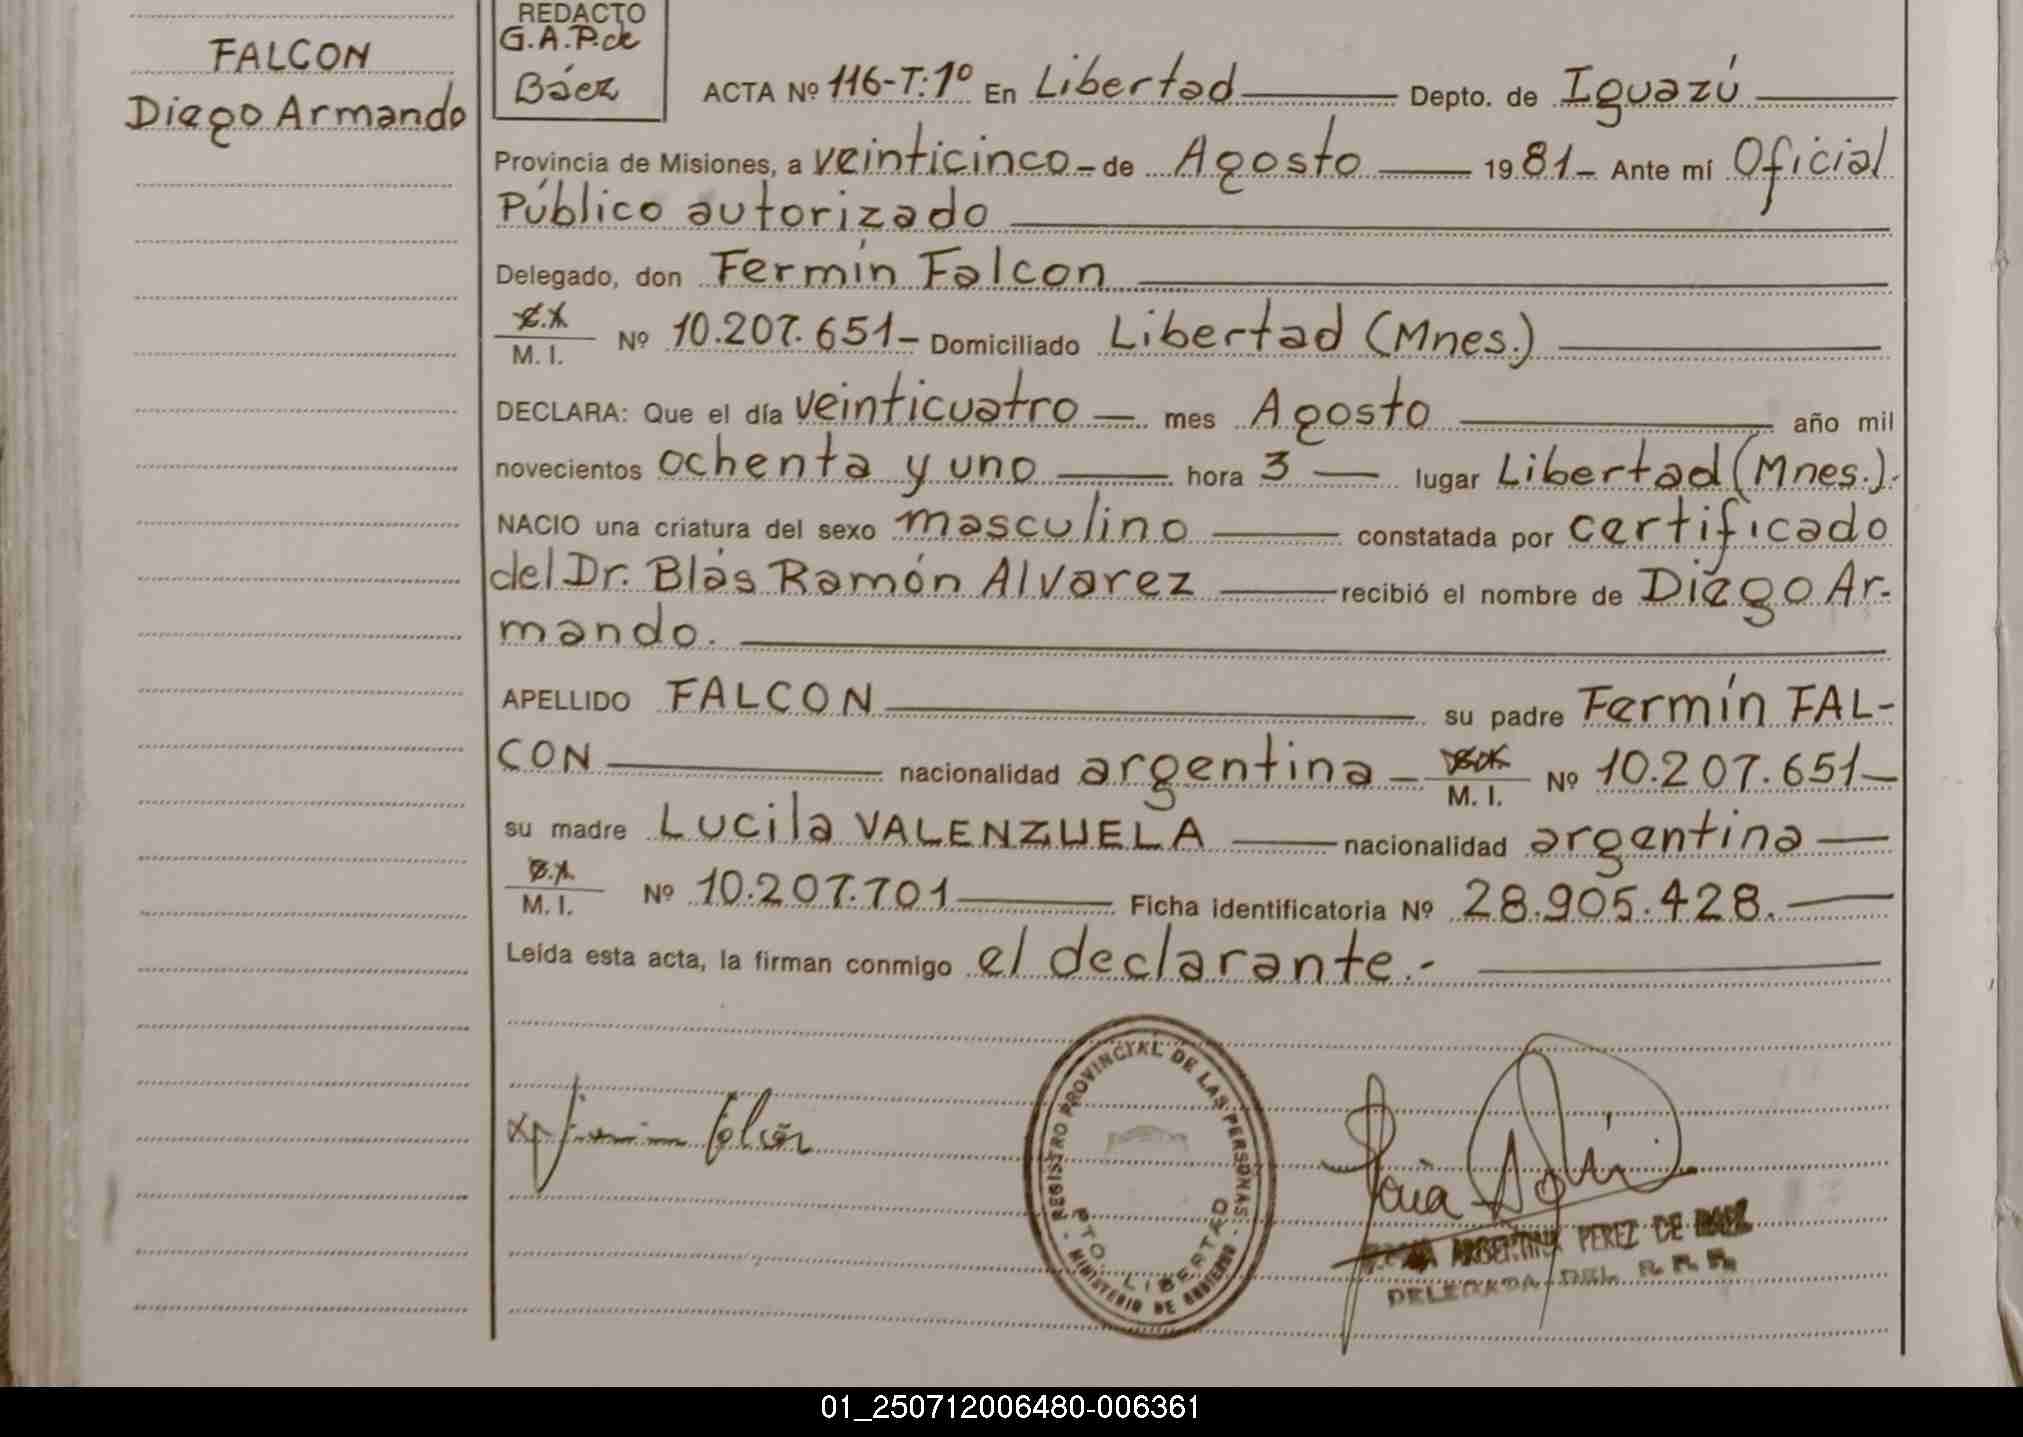 FALCON
Diego Armando
REDACTO
G.A.P.de
Báez
ACTA Nº 116-T:1º En Libertad Depto. de Iguazú
Provincia de Misiones, a veinticinco- de Agosto 1981- Ante mí Oficial
Público autorizado
Delegado, don Fermín Falcon
M. I. Nº 10.207.651- Domiciliado Libertad (Mnes.)
DECLARA: Que el día veinticuatro mes Agosto año mil
novecientos ochenta y uno hora 3 lugar Libertad (Mnes.).
NACIO una criatura del sexo masculino constatada por certificado
del Dr. Blás Ramón Alvarez recibió el nombre de Diego Ar-
mando.
APELLIDO FALCON su padre Fermín FAL-
CON nacionalidad argentina M. I. Nº 10.207.651-
su madre Lucila VALENZUELA nacionalidad argentina
M. I. Nº 10.207.701 Ficha identificatoria Nº 28.905.428.
Leída esta acta, la firman conmigo el declarante.-
REGISTRO PROVINCIAL DE LAS PERSONAS
PTO. LIBERTAD
MINISTERIO DE GOBIERNO
ARGENTINA PEREZ DE BAEZ
DELEGADA DEL R. P. P.
01_250712006480-006361